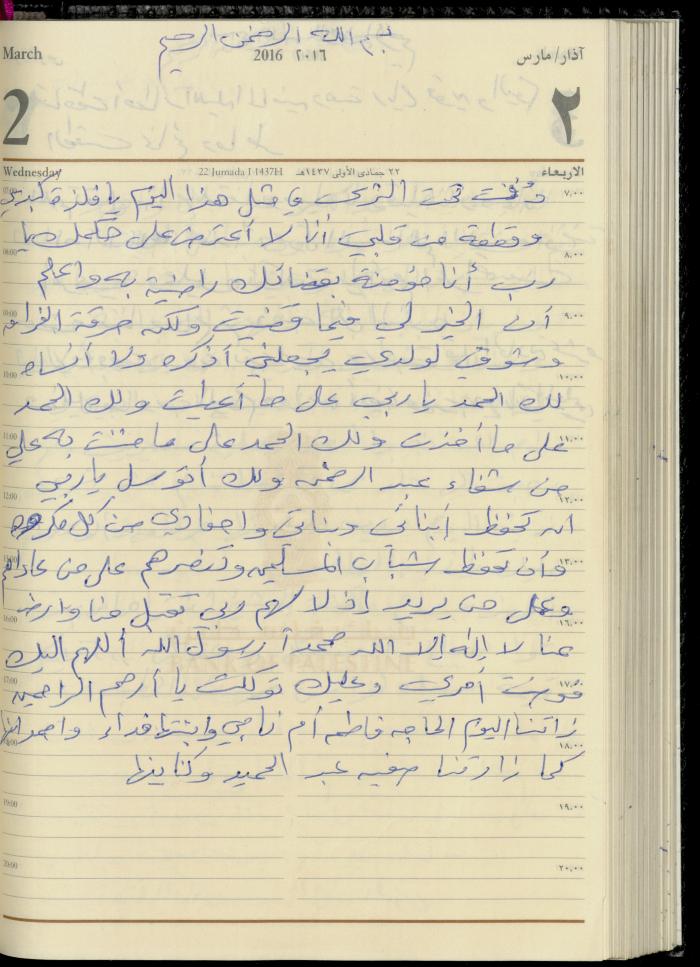 بسم الله الرحمن الرحيم
March 2016 ٢٠١٦ آذار/مارس
2 ٢
Wednesday 22 Jumada I 1437H ٢٢ جمادى الأولى ١٤٣٧هـ الاربعاء
دُفنت تحت الثرى في مثل هذا اليوم يا فلزة كبدي
07:00 ٧,٠٠
وقطعة من قلبي أنا لا أعترض على حكمك يا
08:00 ٨,٠٠
رب أنا مؤمنة بقضائك راضية به واعلم
09:00 ٩,٠٠
أن الخير لي فيما قضيت ولكن حرقة الفراق
وشوقي لولدي يجعلني أذكره ولا أنساه
10:00 ١٠,٠٠
لك الحمد يا ربي على ما أعطيت ولك الحمد
11:00 ١١,٠٠
على ما أخذت ولك الحمد على ما مننت به علي
من شفاء عبد الرحمن ولك أتوسل يا ربي
12:00 ١٢,٠٠
ان تحفظ أبنائي وبناتي واحفادي من كل مكروه
١٣,٠٠
وأن تحفظ شباب المسلمين وتنصرهم على من عاداهم
وعلى من يريد إذلالهم ربي تقبل منا وارض
16:00 ١٦,٠٠
عنا لا إله إلا الله محمداً رسول الله أللهم اليك
BANK OF PALESTINE
17:00 ١٧,٠٠
فوضت أمري وعليك توكلت يا أرحم الراحمين
زارتنا اليوم الحاجه فاطمه أم ناجي وابنتها فداء واحمد ابنها
١٨,٠٠
كما زارتنا صفيه عبد الحميد وكناينها
19:00 ١٩,٠٠
20:00 ٢٠,٠٠